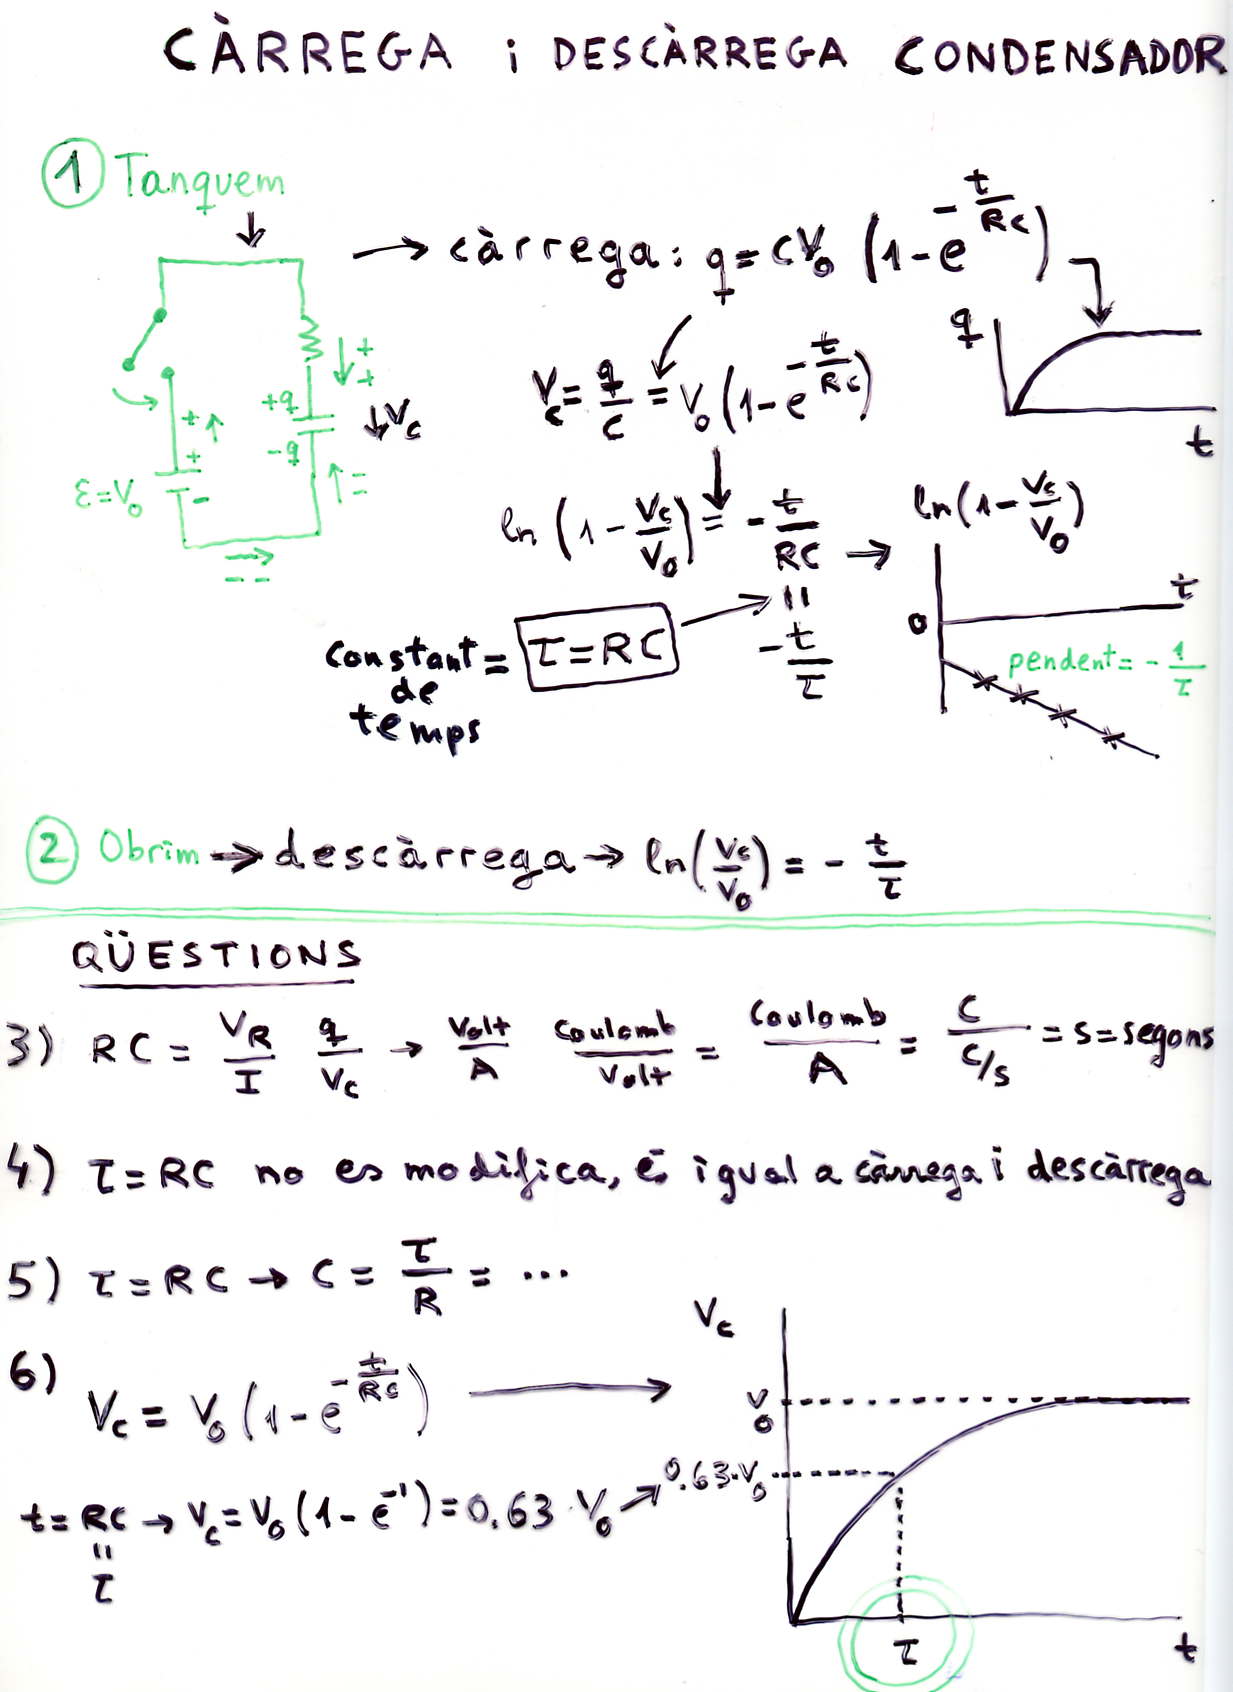 CÀRREGA i DESCÀRREGA CONDENSADOR
1 Tanquem
→ càrrega: q = CV₀ (1 - e^(-t/RC))
q
t
V_c = q/C = V₀ (1 - e^(-t/RC))
+ +
+q
-q
↓V_c
+
+
-
=
- -
ε=V₀
ln (1 - V_c/V₀) = -t/RC →
= -t/τ
ln(1 - V_c/V₀)
t
0
pendent = -1/τ
constant de temps = τ=RC
2 Obrim → descàrrega → ln(V_c/V₀) = - t/τ
QÜESTIONS
3) RC = V_R/I q/V_c → Volt/A Coulomb/Volt = Coulomb/A = C/C/s = s = segons
4) τ=RC no es modifica, és igual a càrrega i descàrrega
5) τ=RC → C = τ/R = ...
6) V_c = V₀ (1 - e^(-t/RC)) →
t = RC → V_c = V₀ (1 - e⁻¹) = 0.63 · V₀
=
τ
V_c
V₀
0.63·V₀
τ
t